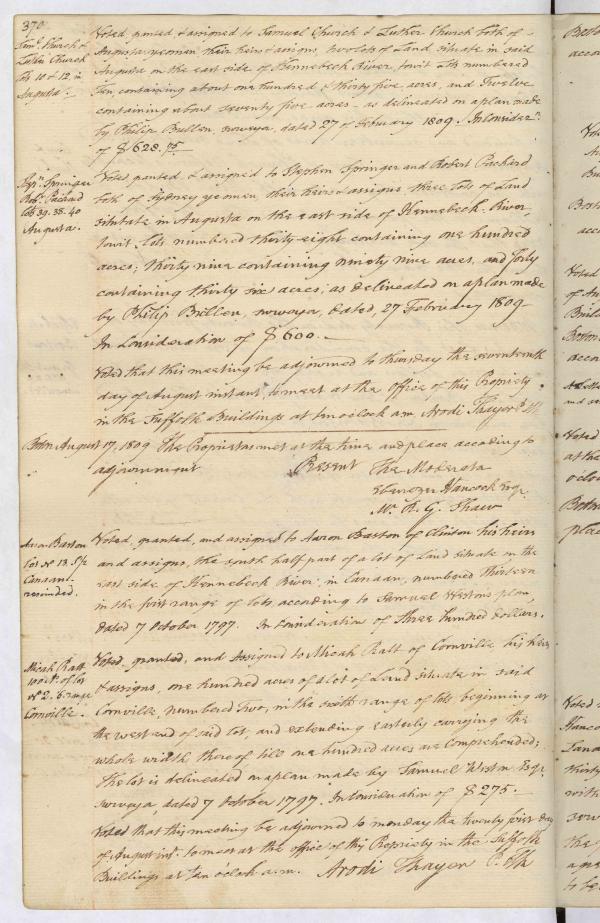 370
Saml. Church &
Luther Church
Lots 10 & 12 in
Augusta.
Voted, granted & assigned to Samuel Church & Luther Church both of
Augusta yeoman their heirs & assigns, two lots of Land, situate in said
Augusta on the east side of Kennebeck River, towit Lots numbered
Ten, containing about one hundred & thirty five acres, and Twelve
containing about seventy five acres - as delineated on a plan made
by Philip Bullen, surveyor, dated 27 of February 1809. In consideran.
of $628.75.
Stpn. Springer
Robt. Packard
Lots 39. 38. 40
Augusta.
Voted, granted & assigned to Stephen Springer and Robert Packard
both of Sydney yeomen, their heirs & assigns three lots of Land
situtate in Augusta on the east side of Kennebeck River,
towit, Lots numbered thirty eight containing one hundred
acres; thirty nine containing ninety nine acres, and forty
containing thirty six acres; as delineated on a plan made
by Philip Bullen, surveyor, dated, 27 February 1809
In Consideration of $600.
Voted that this meeting be adjourned to thursday the seventeenth
day of August instant, to meet at the Office of this Propriety
in the Suffolk Buildings at ten oclock a.m. Arodi Thayer
Boston August 17, 1809 The Proprietors met at the time and place according to
adjournment
Present The Moderator
Ebenezer Hancock Esqr.
Mr. R. G. Shaw
Aaron Barston
Lot No 13 S/2
Canaan.
rescinded.
Voted, granted, and assigned to Aaron Barston of Clinton his heirs
and assigns, the south half part of a lot of Land situate in the
east side of Kennebeck River in Canaan, numbered Thirteen
in the first range of lots according to Samuel Westons plan,
dated 7 October 1797. In Consideration of Three hundred dollars.
Micah Ratt
100 As. of lot
No 2. 6. range
Cornville.
Voted, granted, and Assigned to Micah Ratt of Cornville, his heirs
& assigns, one hundred acres of a lot of Land situate in said
Cornville, numbered Two, in the sixth range of lots, beginning at
the west end of said lot, and extending easterly carrying the
whole width thereof till one hundred acres are comprehended;
The lot is delineated on a plan made by Samuel Weston Esqr.
surveyor, dated 7 October 1797. In Consideration of $275.
Voted that this meeting be adjourned to monday the twenty first day
of August inst. to meet at the office of this Propriety in the Suffolk
Buildings at ten oclock a.m. Arodi Thayer P. Clk